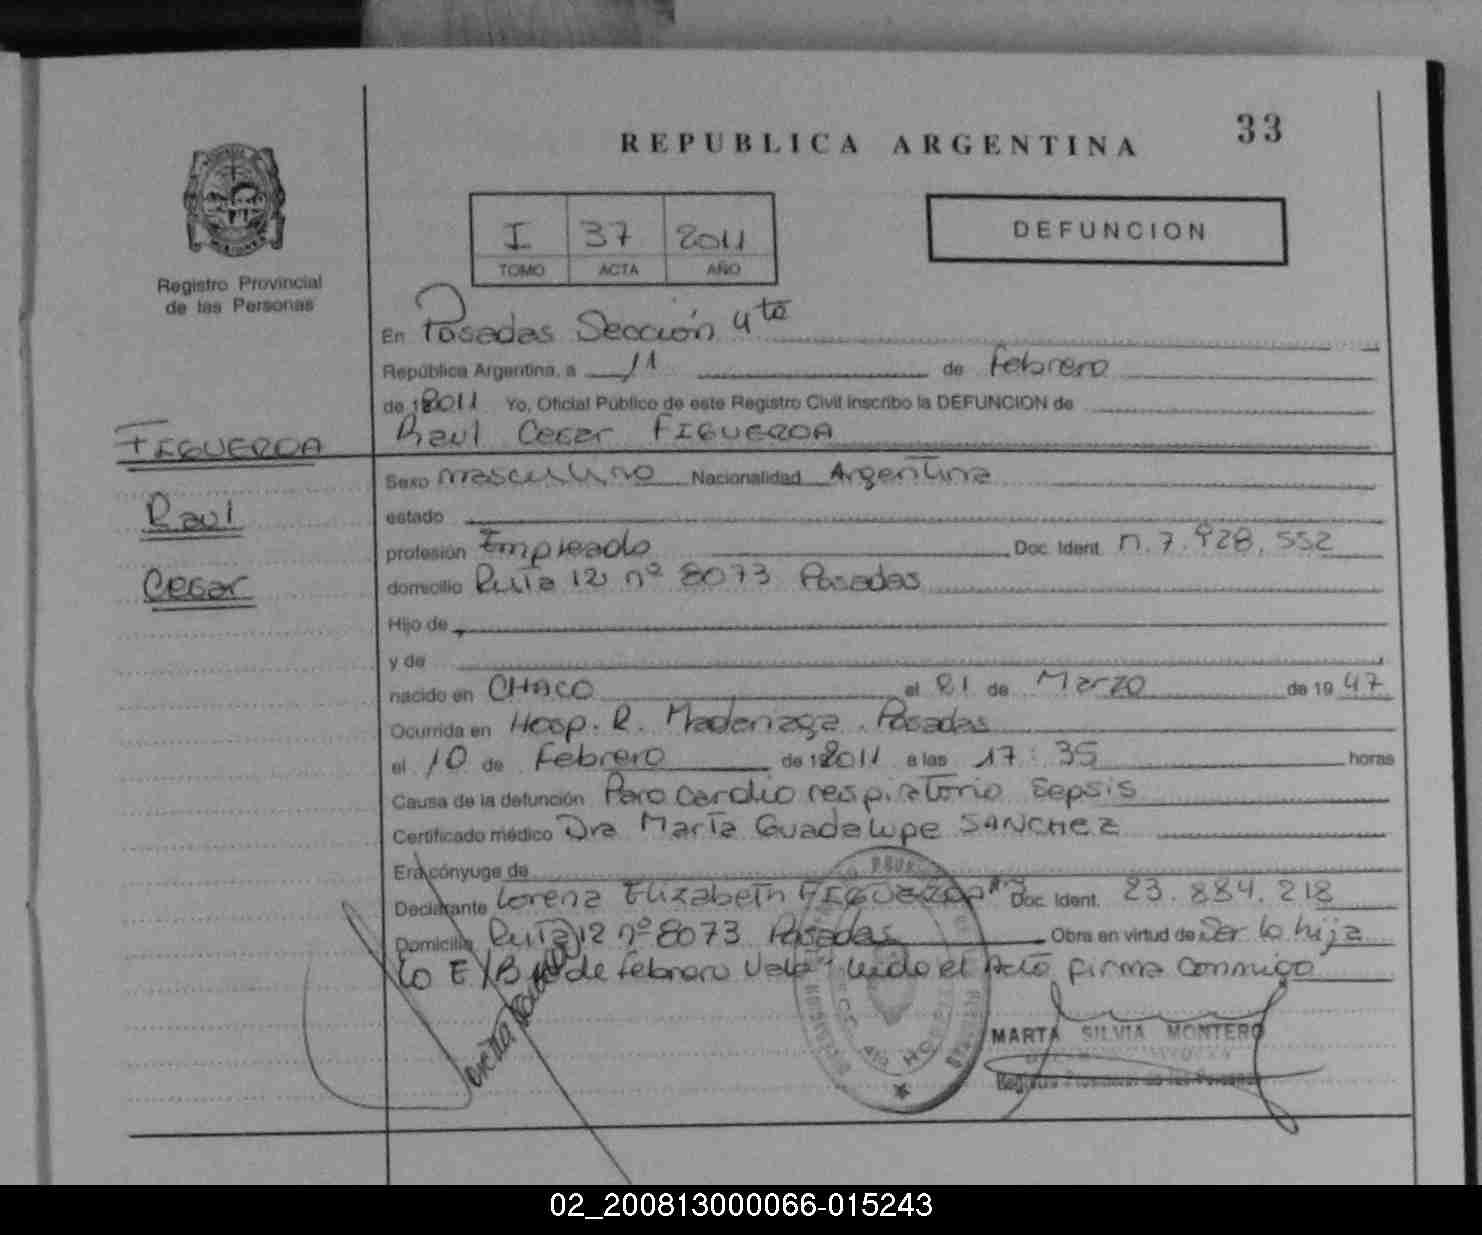 REPUBLICA ARGENTINA
33
Registro Provincial
de las Personas
I 37 2011
TOMO ACTA AÑO
DEFUNCION
En Posadas Sección 4ta
República Argentina, a 11 de febrero
de 2011 Yo, Oficial Público de este Registro Civil inscribo la DEFUNCION de
Raul Cesar FIGUEROA
FIGUEROA
Raul
Cesar
Sexo masculino Nacionalidad Argentina
estado
profesión Empleado Doc. Ident. n. 7.928.552
domicilio Ruta 12 nº 8073 Posadas
Hijo de
y de
nacido en CHACO el 21 de Marzo de 19 47
Ocurrida en Hosp. R. Madariaga. Posadas
el 10 de febrero de 2011 a las 17:35 horas
Causa de la defunción Paro cardio respiratorio sepsis
Certificado médico Dra María Guadalupe SANCHEZ
Era cónyuge de
Declarante Lorena Elizabeth FIGUEROA Doc. Ident. 23.884.218
Domicilio Ruta 12 nº 8073 Posadas Obra en virtud de Ser la hija
de febrero Vale leido el Acto firma conmigo
MARTA SILVIA MONTERO
Registro Provincial de las Personas
02_200813000066-015243